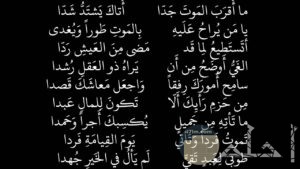 ما أقرَبَ الموتَ جَدّا أتاكَ يَشتَدُّ شَدّا
يا مَن يُراحُ عَلَيهِ بِالموتِ طَوراً وَيُغدى
أَتَستَطيعُ لِما قَد مَضى مِنَ العَيشِ رَدّا
الغَيُّ أَوضَحُ مِن أَن يَراهُ ذو العَقلِ رُشدا
سامِح أُمورَكَ رِفقاً وَاجعَل مَعاشَكَ قَصدا
مِن حَزمِ رَأيِكَ أَلّا تَكونَ لِلمالِ عَبدا
ما تَأتِهِ مِن جَميلٍ يُكسِبكَ أَجراً وَحَمدا
تَموتُ فَرداً وَتَأتي يَومَ القِيامَةِ فَردا
طوبى لِعَبدٍ تَقِيٍّ لَم يَألُ في الخَيرِ جُهدا